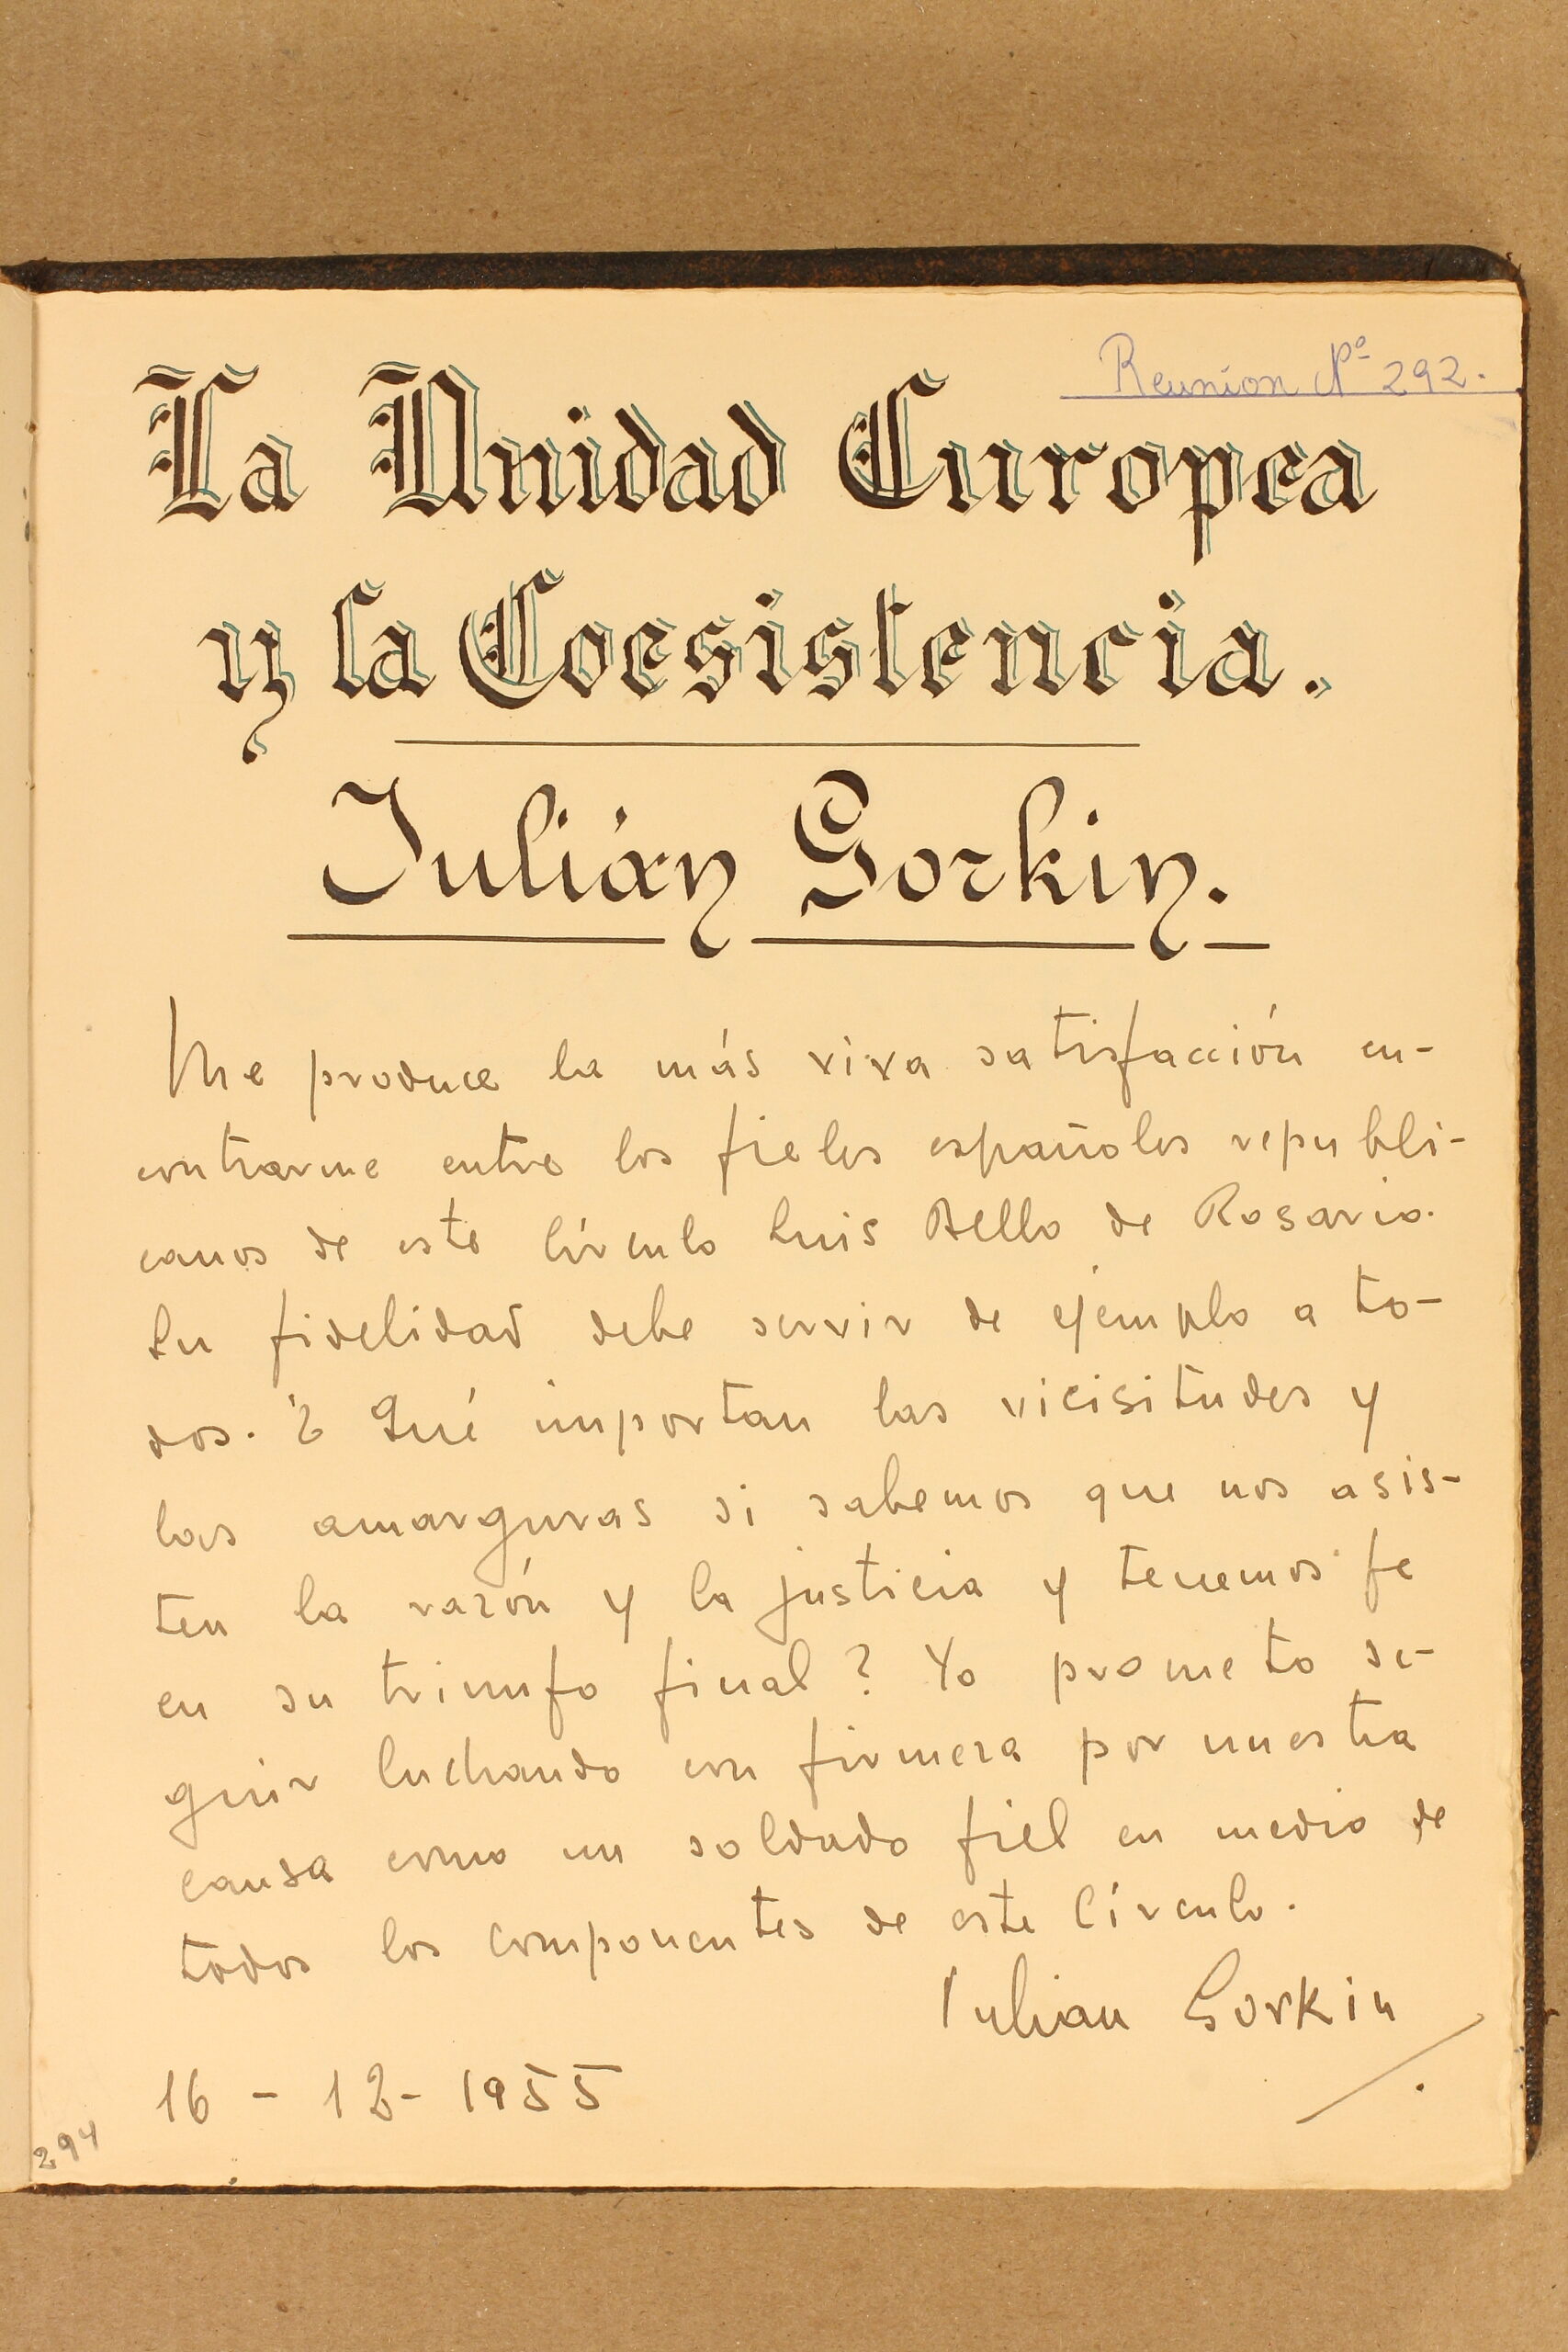 Reunion Nº 292.
La Unidad Europea
y la Coesistencia.
Julián Gorkin.
Me produce la más viva satisfacción en-
contrarme entre los fieles españoles republi-
canos de este Círculo Luis Bello de Rosario.
Su fidelidad debe servir de ejemplo a to-
dos. ¿Qué importan las vicisitudes y
las amarguras si sabemos que nos asis-
ten la razón y la justicia y tenemos fe
en su triunfo final? Yo prometo se-
guir luchando con firmeza por nuestra
causa como un soldado fiel en medio de
todos los componentes de este Círculo.
Julian Gorkin
16 - 12 - 1955
294